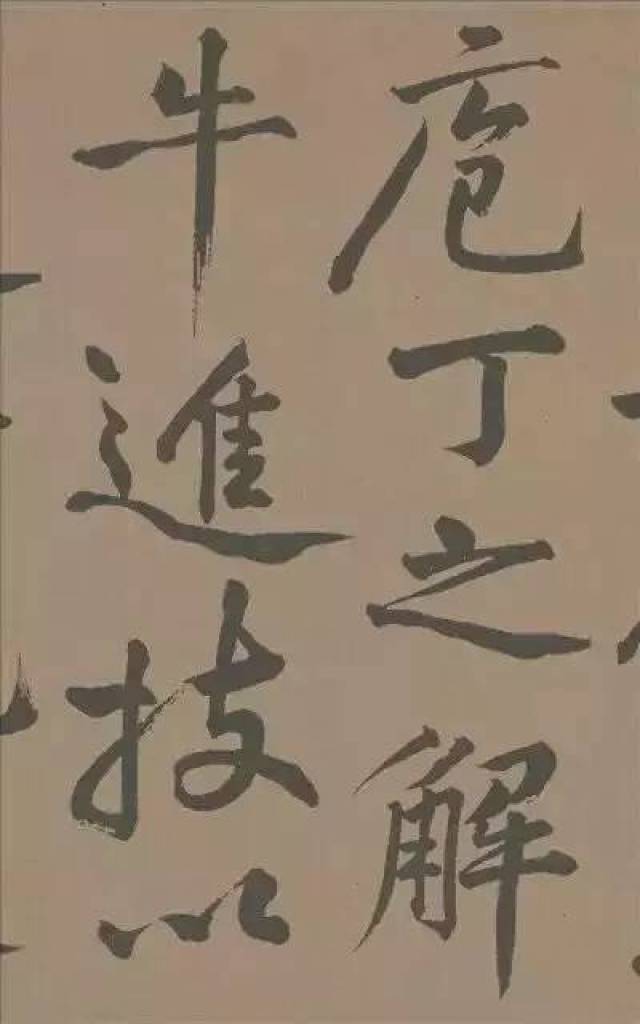 庖丁之解
牛進技以